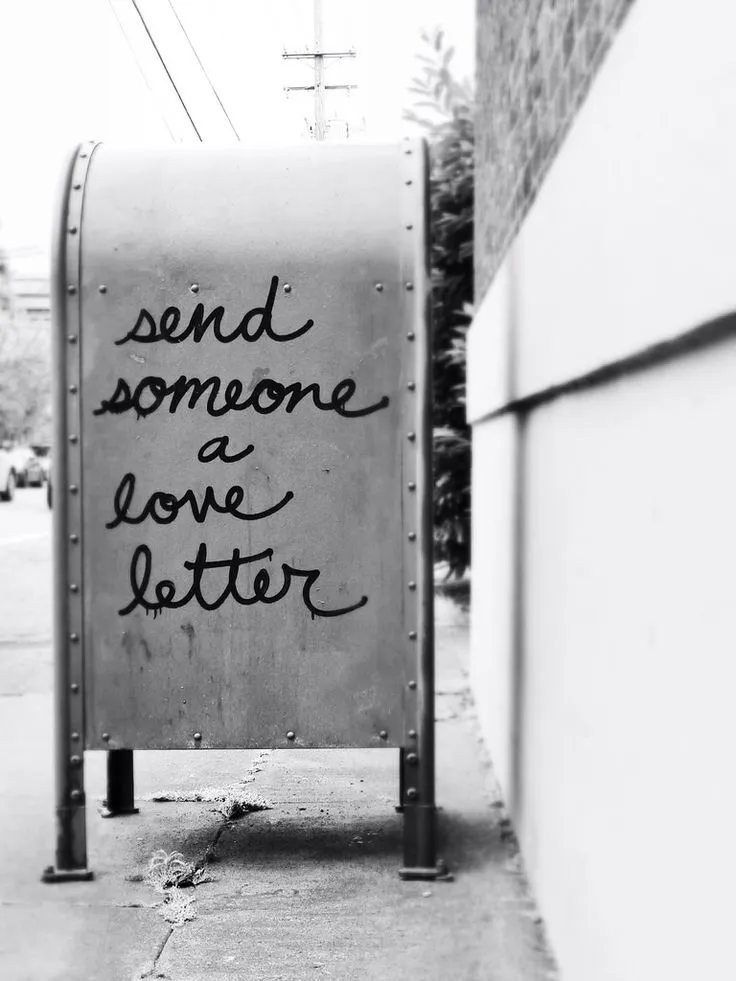 send
someone
a
love
letter